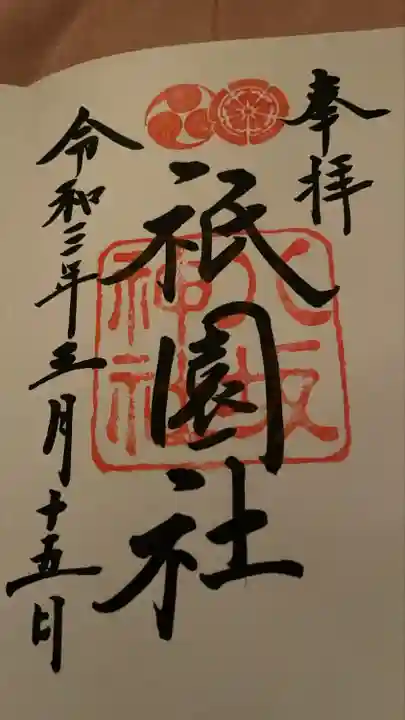 奉拝
祇園社
八坂神社
令和三年三月十五日